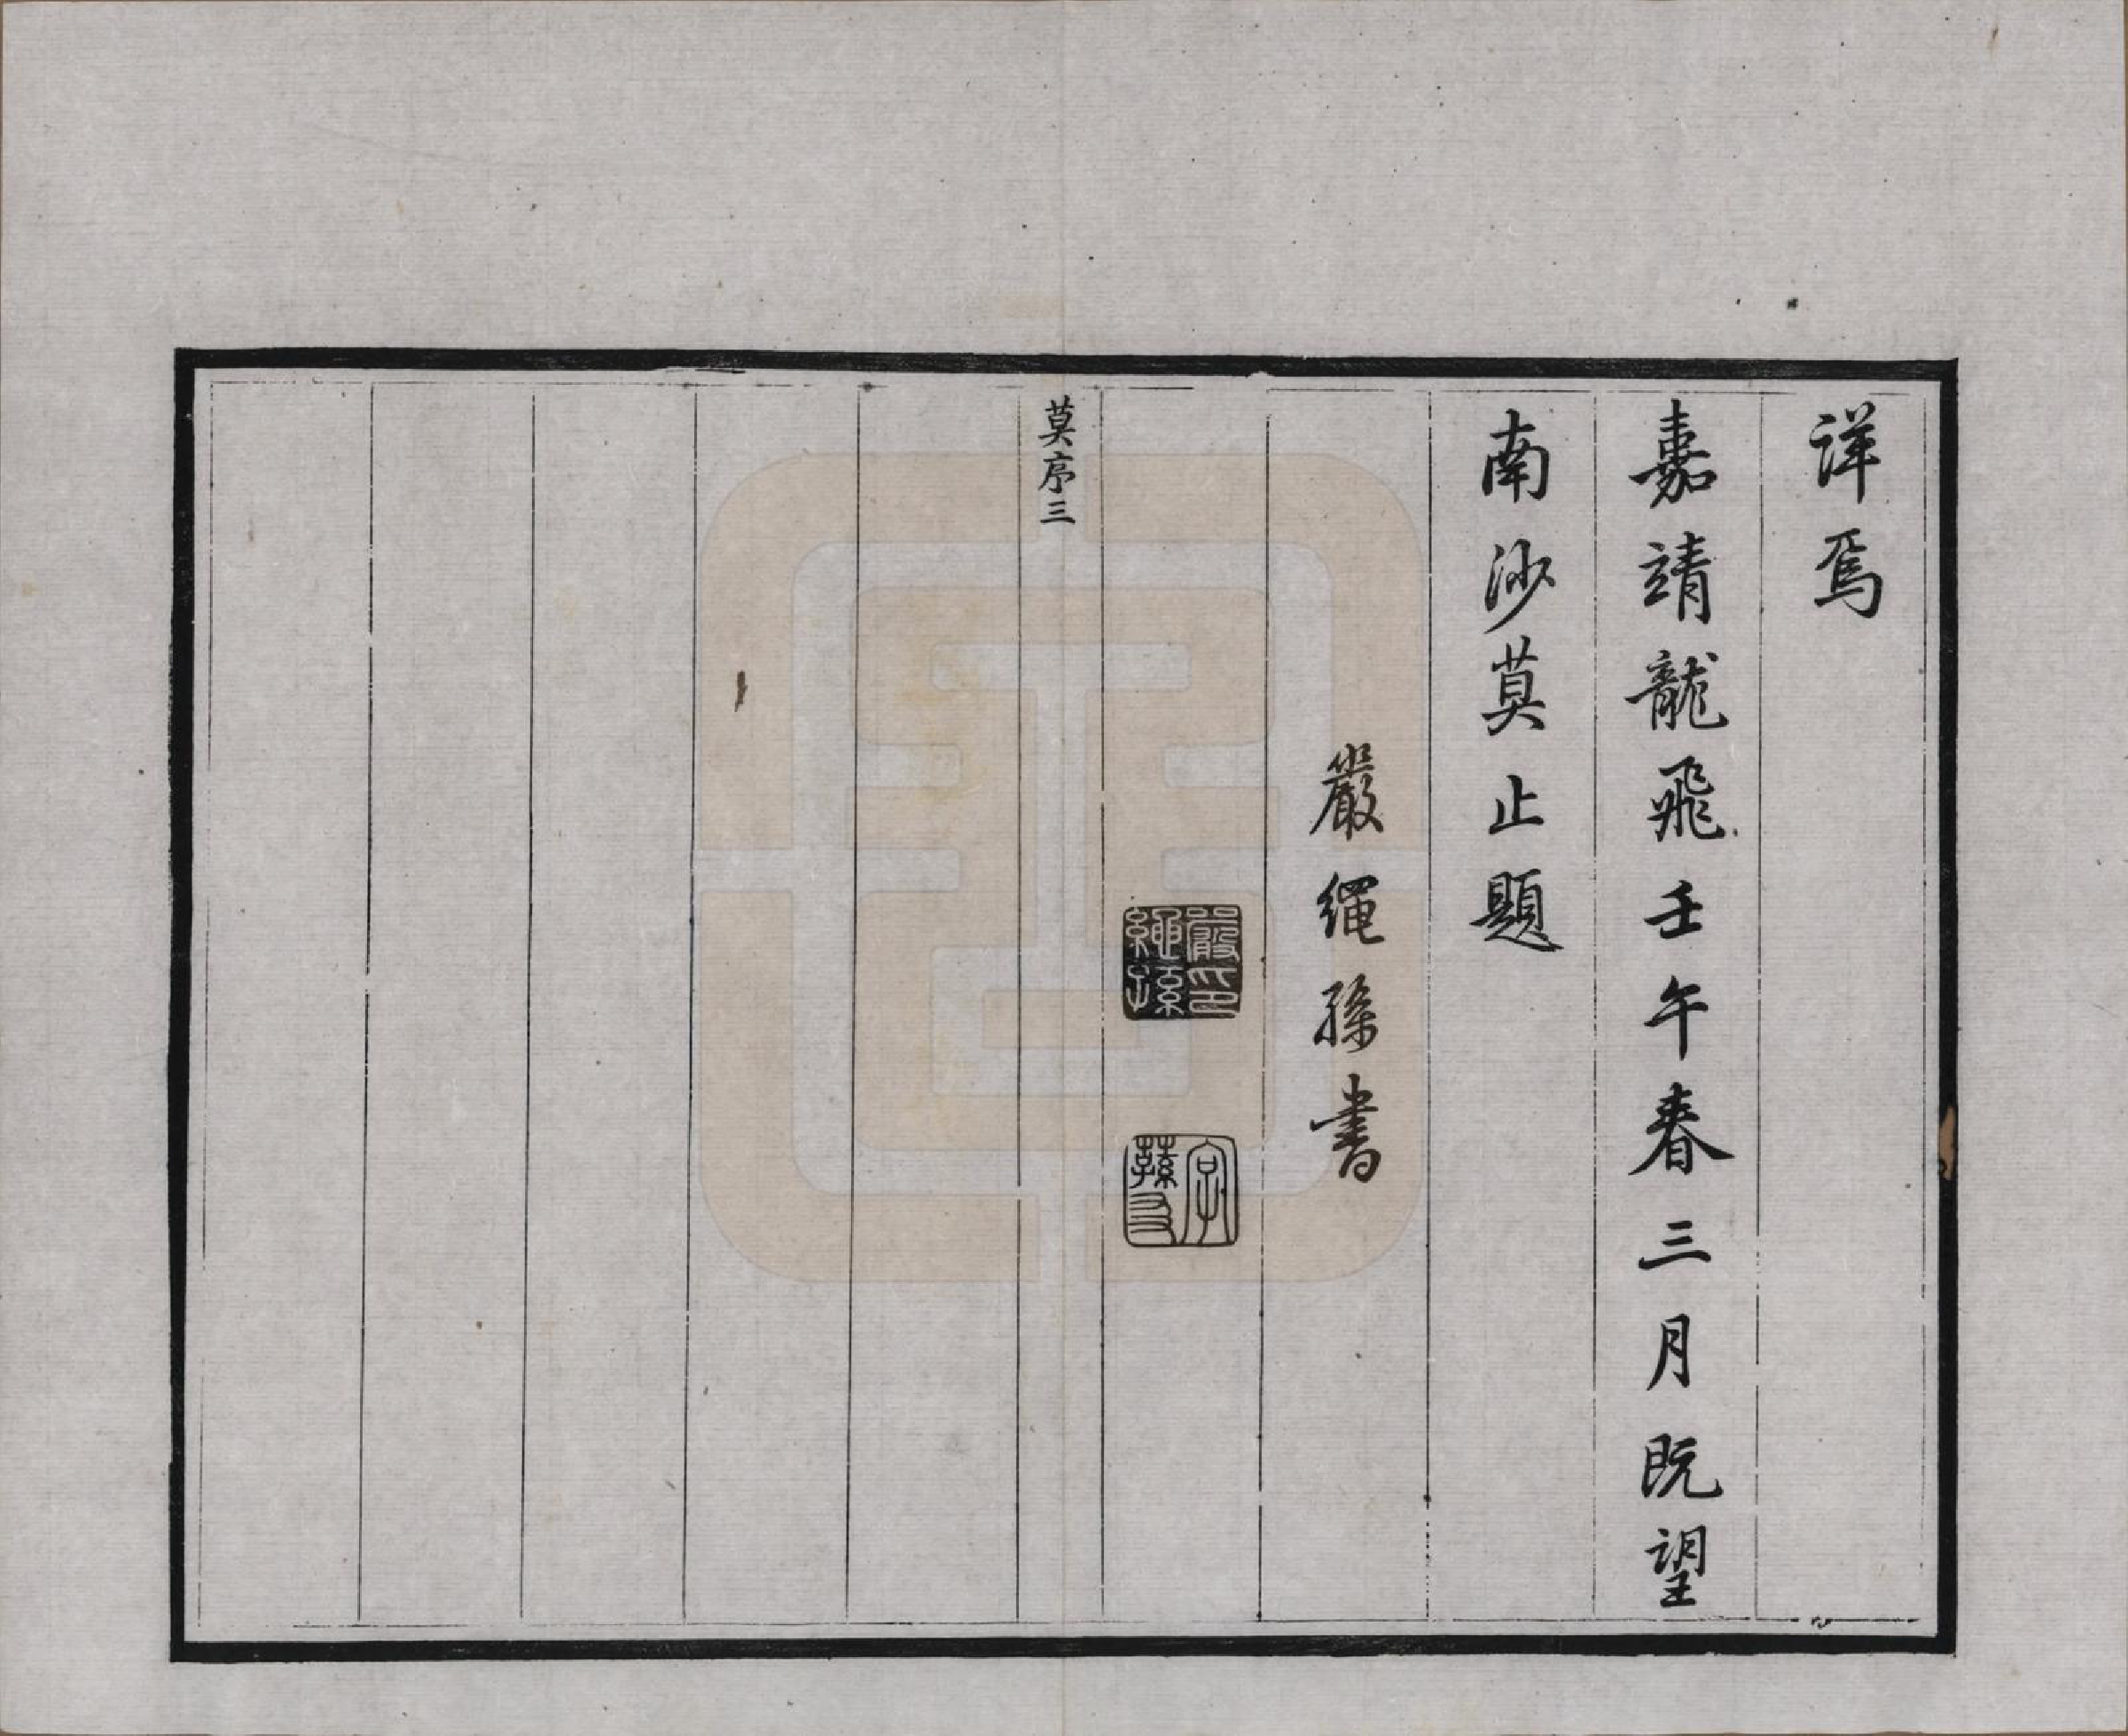 詳焉
嘉靖龍飛壬午春三月既望
南沙莫止題
嚴繩孫書
嚴印繩孫
字蓀友
莫序三